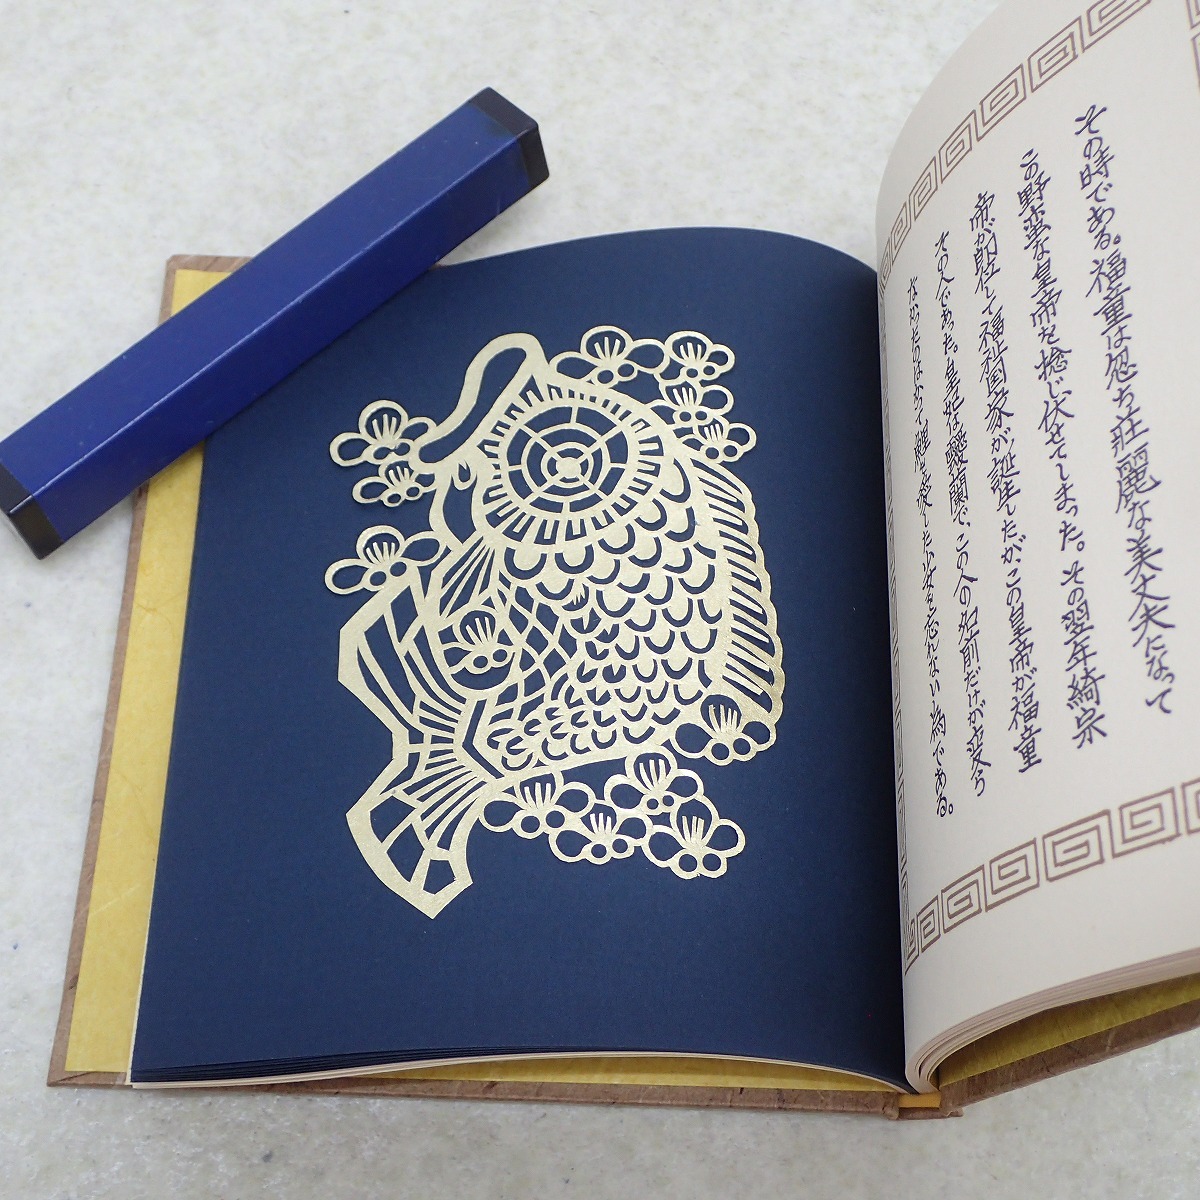 その時である。福童は忽ち壮麗な美丈夫になって
この野蛮な皇帝を捻じ伏せてしまった。その翌年綺宗
帝が即位して福祉国家が誕生したが、この皇帝が福童
その人であった。皇妃は靉蘭で、この人の名前だけが変ら
なかったのはかつて鯉を愛した少女を忘れない為である。